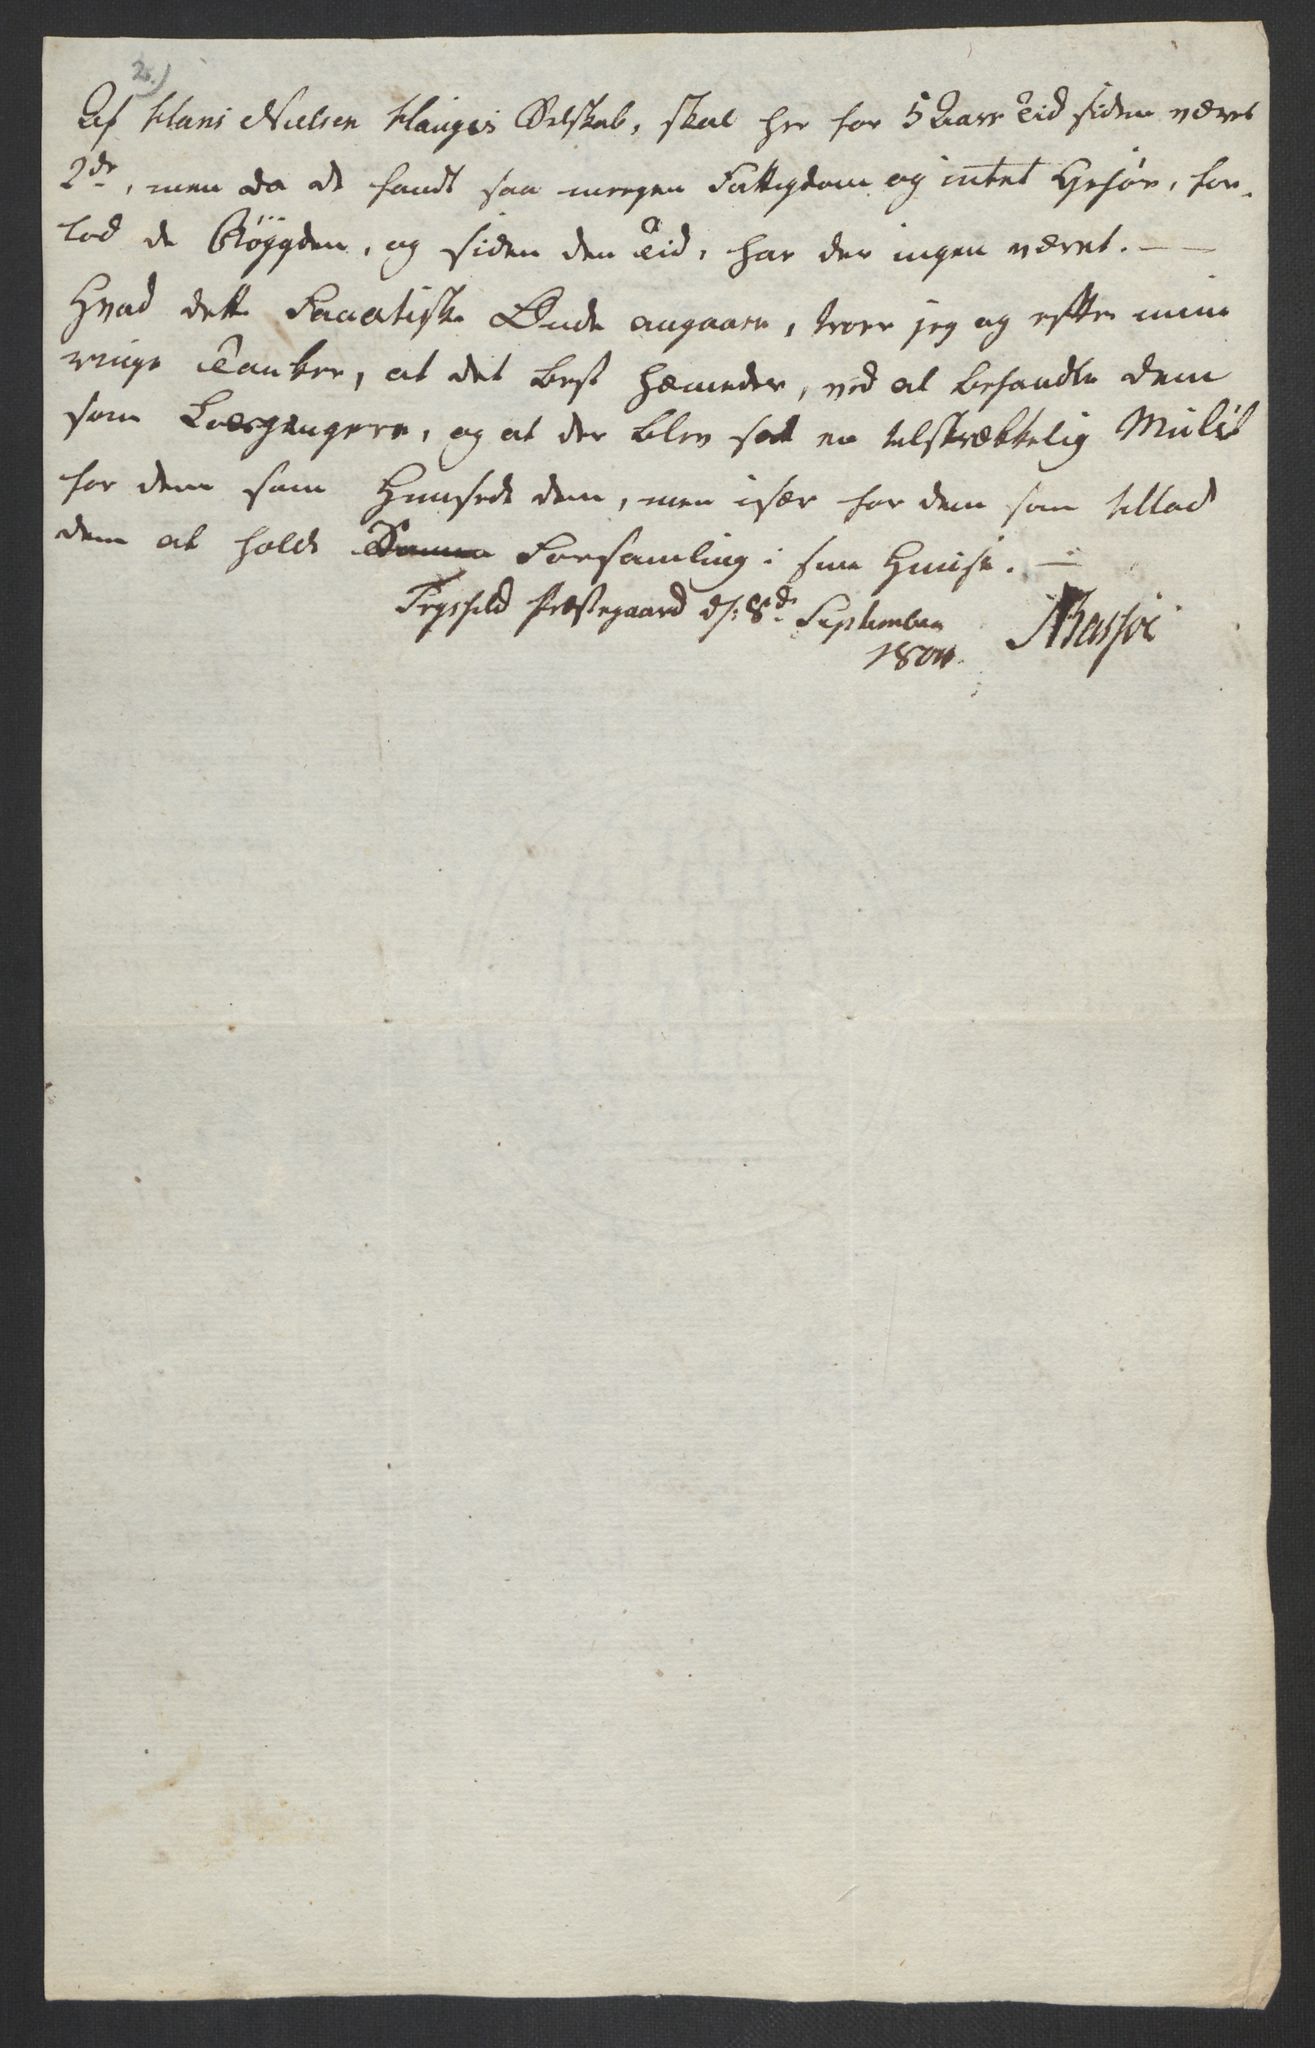 2.)
Af Hans Nielsen Hauges Selskab, skal her for 5 Aars Tid siden været
2de, men da de fandt saa megen Fattigdom og intet Gehør, for-
lod de Bøygden, og siden den Tid, har der ingen været. —
Hvad dette Fanatiske Onde angaaer, troer jeg og efter mine
ringe Tanker, at det best hæmedes, ved at behandle dem
som Løsgængere, og at der blev sat en tilstrækkelig Mulct
for dem som Huusede dem, men især for dem som tillod
dem at holde Forsamling i sine Huuse. —
Trysild Præstegaard d: 8de September
1804.